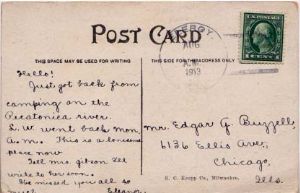 POST CARD
LEROY.
AUG
A.M.
1913
THIS SPACE MAY BE USED FOR WRITING
THIS SIDE FOR THE ADDRESS ONLY
1 CENT 1
Hello!
Just got back from
camping on the
Pecatonica river.
L. W. went back mon,
A. m. This is a lonesome
place now
Tell mrs. gibson I'll
write to her soon.
We missed you all so
Eleanor
Mr. Edgar G Buzzell,
6136 Ellis Ave,
Chicago,
Ills.
E. C. Kropp Co., Milwaukee.